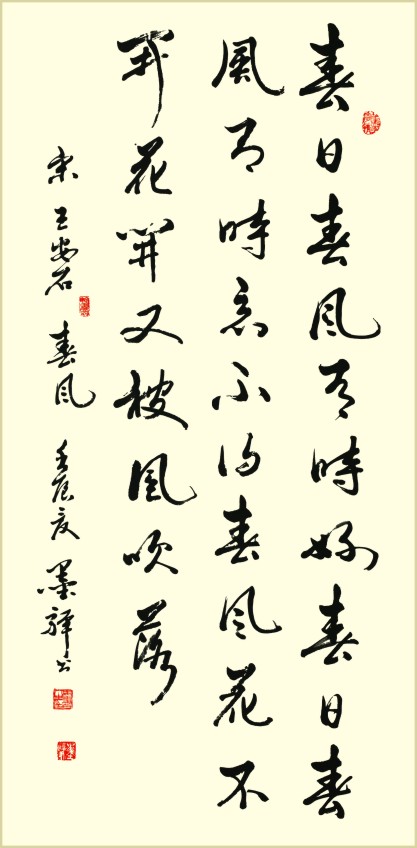 春日春风有時好春日春
風有時惡不得春风花不
開花開又被風吹落
宋王安石春风壬辰夏墨驛书